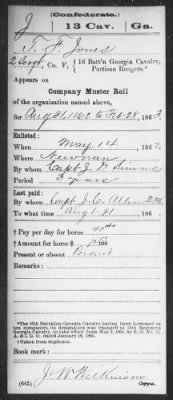 (Confederate.)
J 13 Cav. Ga.
T. F. Jones
2 Sergt, Co. F, 16 Batt'n Georgia Cavalry,
Partisan Rangers.*
Appears on
Company Muster Roll
of the organization named above,
for Aug 31, 1862 to Feb 28, 1863.
Enlisted:
When May 14, 186
Where Newnan
By whom Capt J.
Period 3 years
Last paid:
By whom Capt J. C. Allen
To what time Aug 31, 186
† Pay per day for horse 40
† Amount for horse $
Present or absent Present
Remarks:
*The 16th Battalion Georgia Cavalry having been increased to
ten companies, its designation was changed to 13th Regiment
Georgia Cavalry, to take effect from May 2, 1864, by S. O. No.
A. & I. G. O., dated January 1865.
†Taken from duplicate.
Book mark:
J. W. Wilkinson
(642) Copyist.